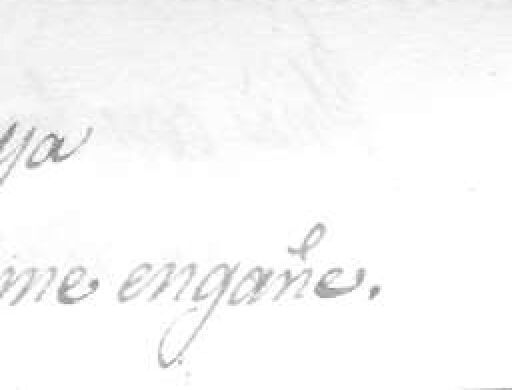 ya
me engañe.